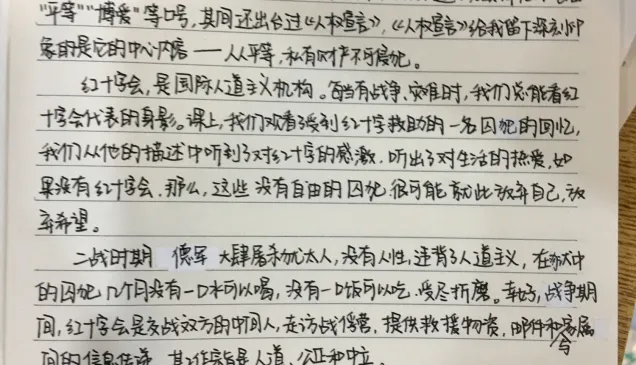 "平等""博爱"等口号,其间还出台过《人权宣言》,《人权宣言》给我留下深刻印
象的是它的中心内容——人人平等,私有财产不可侵犯。
红十字会,是国际人道主义机构。每当有战争、灾难时,我们总能看红
十字会代表的身影。课上,我们观看了受到红十字救助的一名囚犯的回忆,
我们从他的描述中听到了对红十字的感激,听出了对生活的热爱,如
果没有红十字会,那么,这些没有自由的囚犯很可能就此放弃自己,放
弃希望。
二战时期 德军 大肆屠杀犹太人,没有人性,违背了人道主义,在
的囚犯几个月没有一口水可以喝,没有一口饭可以吃,受尽折磨。幸好,战争期
间,红十字会是交战双方的中间人,走访战俘营,提供救援物资,邮件和家属
间的信息传递,其工作宗旨是人道、公正和中立。